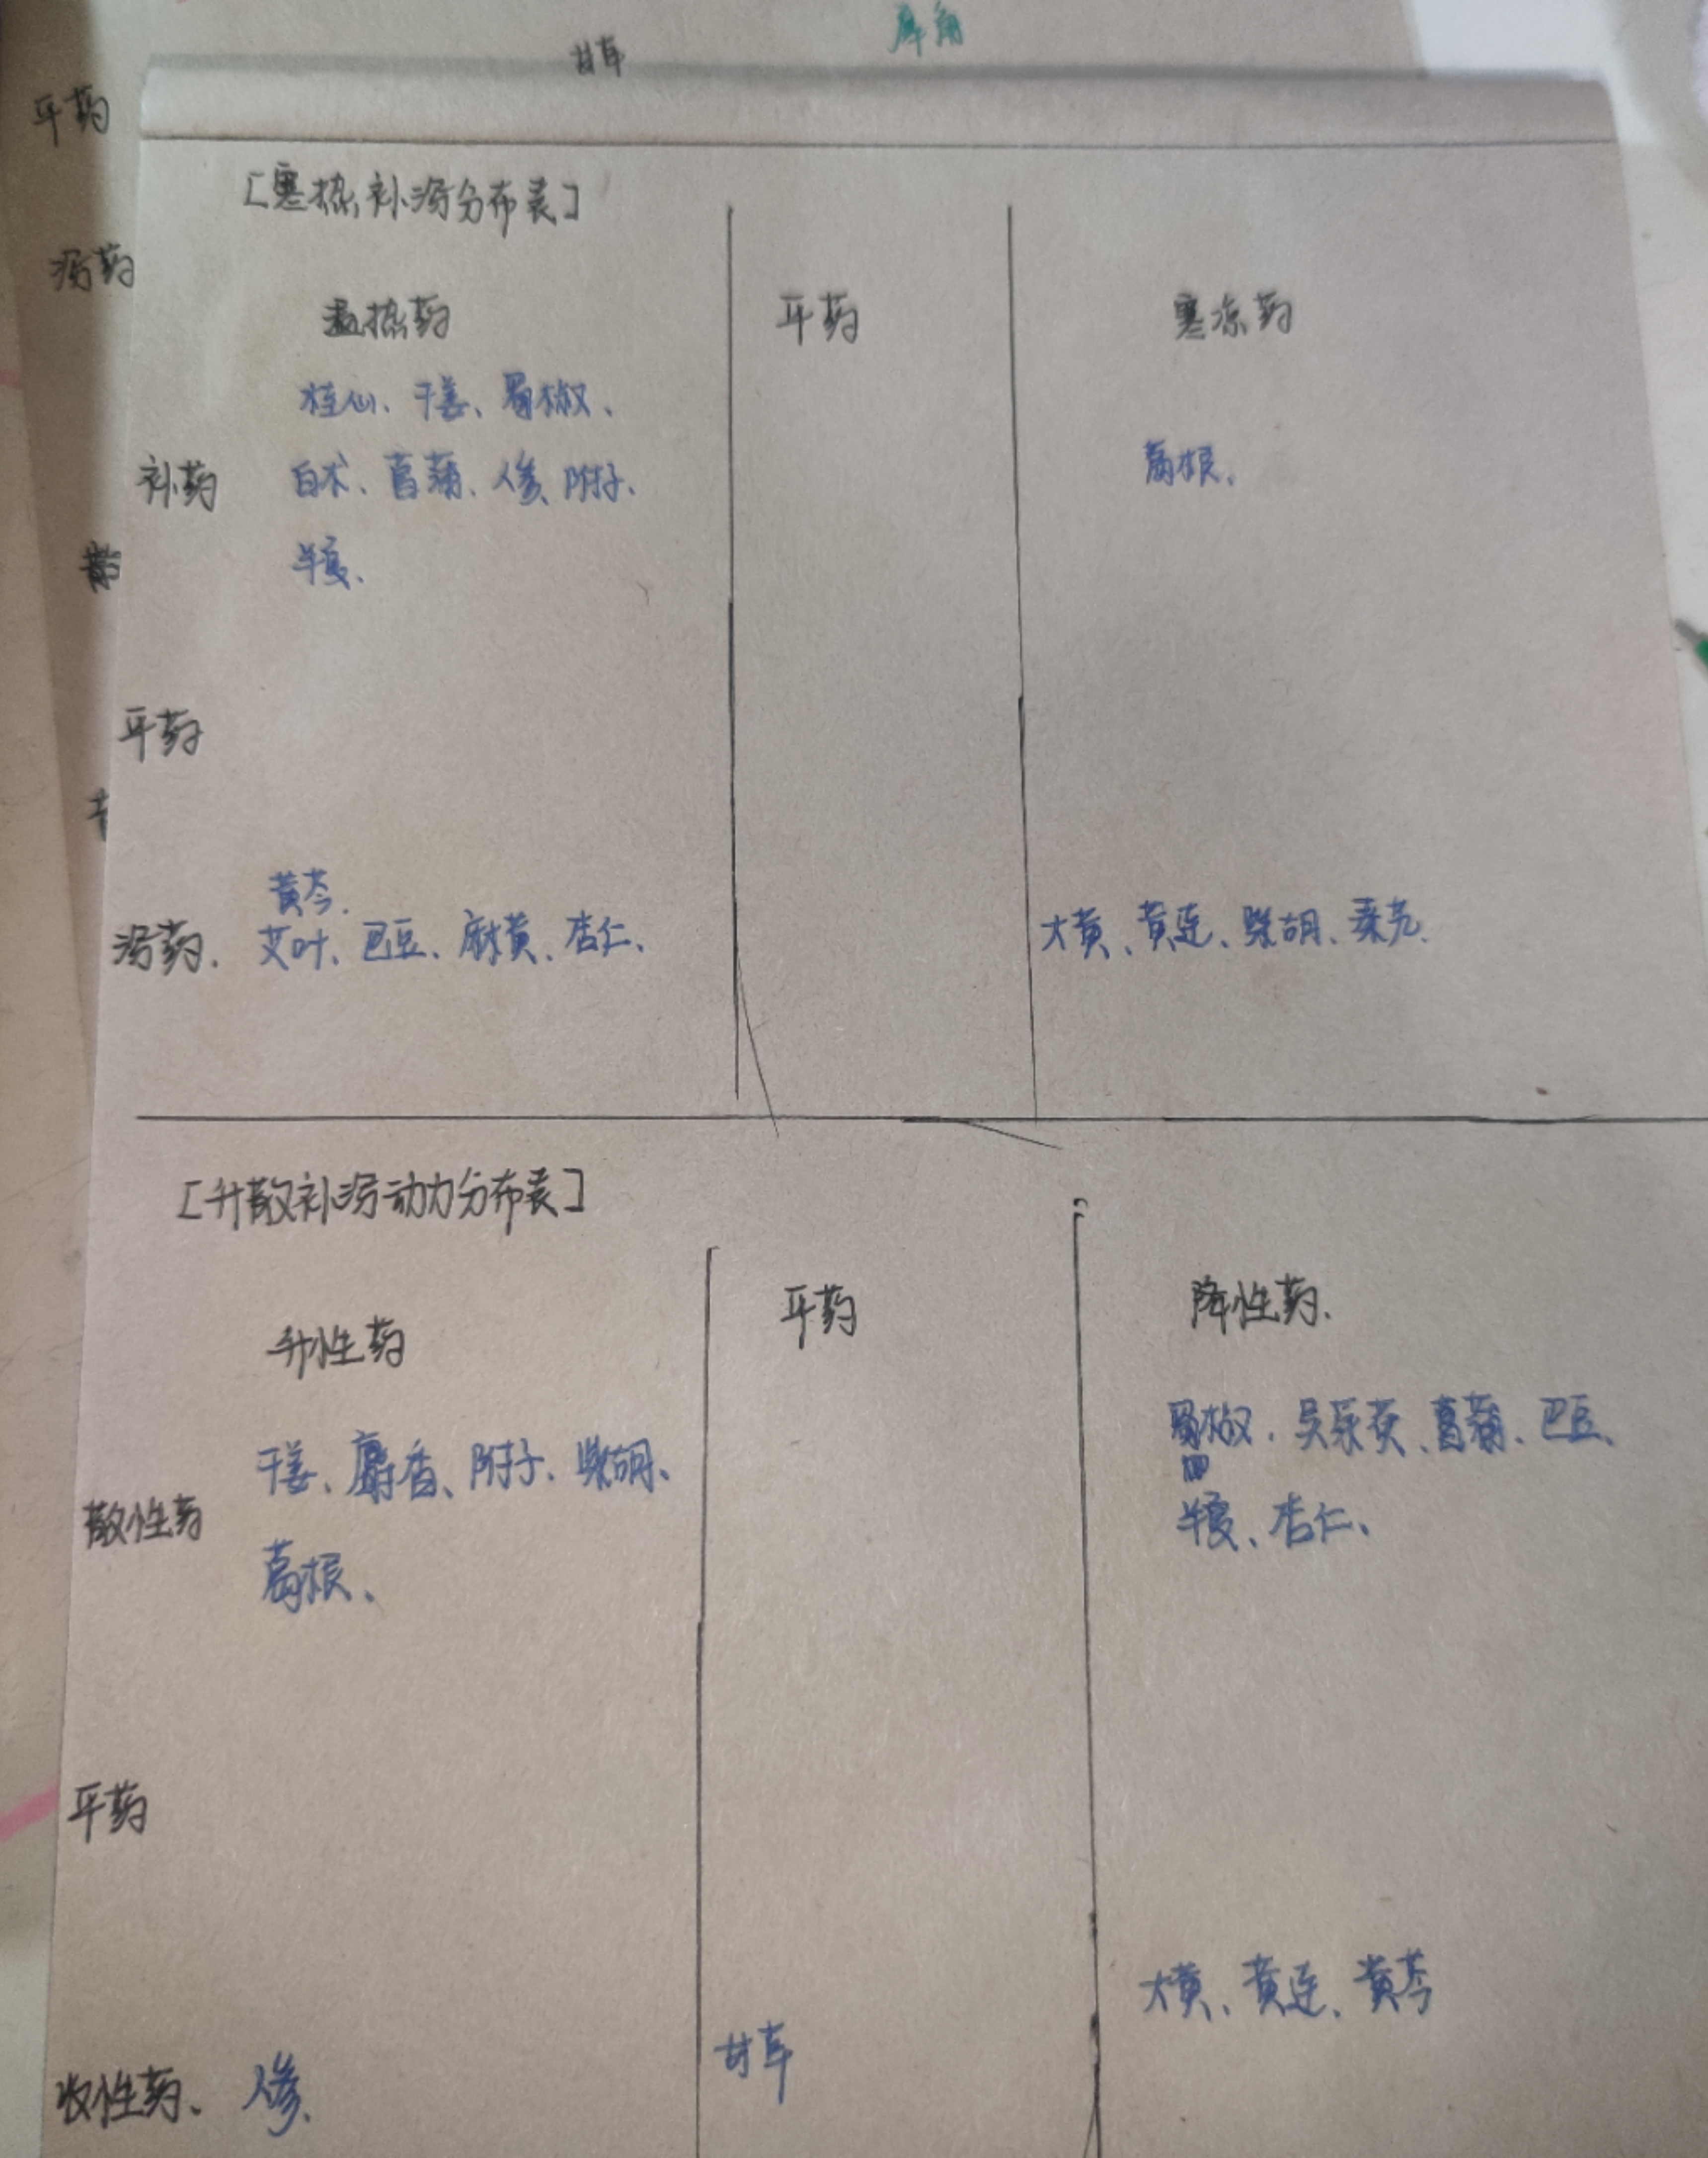 犀角
甘草
平药
[寒热补泻分布表]
泻药
温热药 平药 寒凉药
桂仙、干姜、蜀椒、
补药 白术、菖蒲、人参、附子、 葛根、
半夏、
平药
黄芩、
泻药、艾叶、巴豆、麻黄、杏仁、 大黄、黄连、柴胡、秦艽、
[升散补泻动力分布表]
升性药 平药 降性药、
干姜、麝香、附子、柴胡、 蜀椒、吴茱萸、菖蒲、巴豆、
散性药 半夏、杏仁、
葛根、
平药
大黄、黄连、黄芩
收性药、人参、 甘草